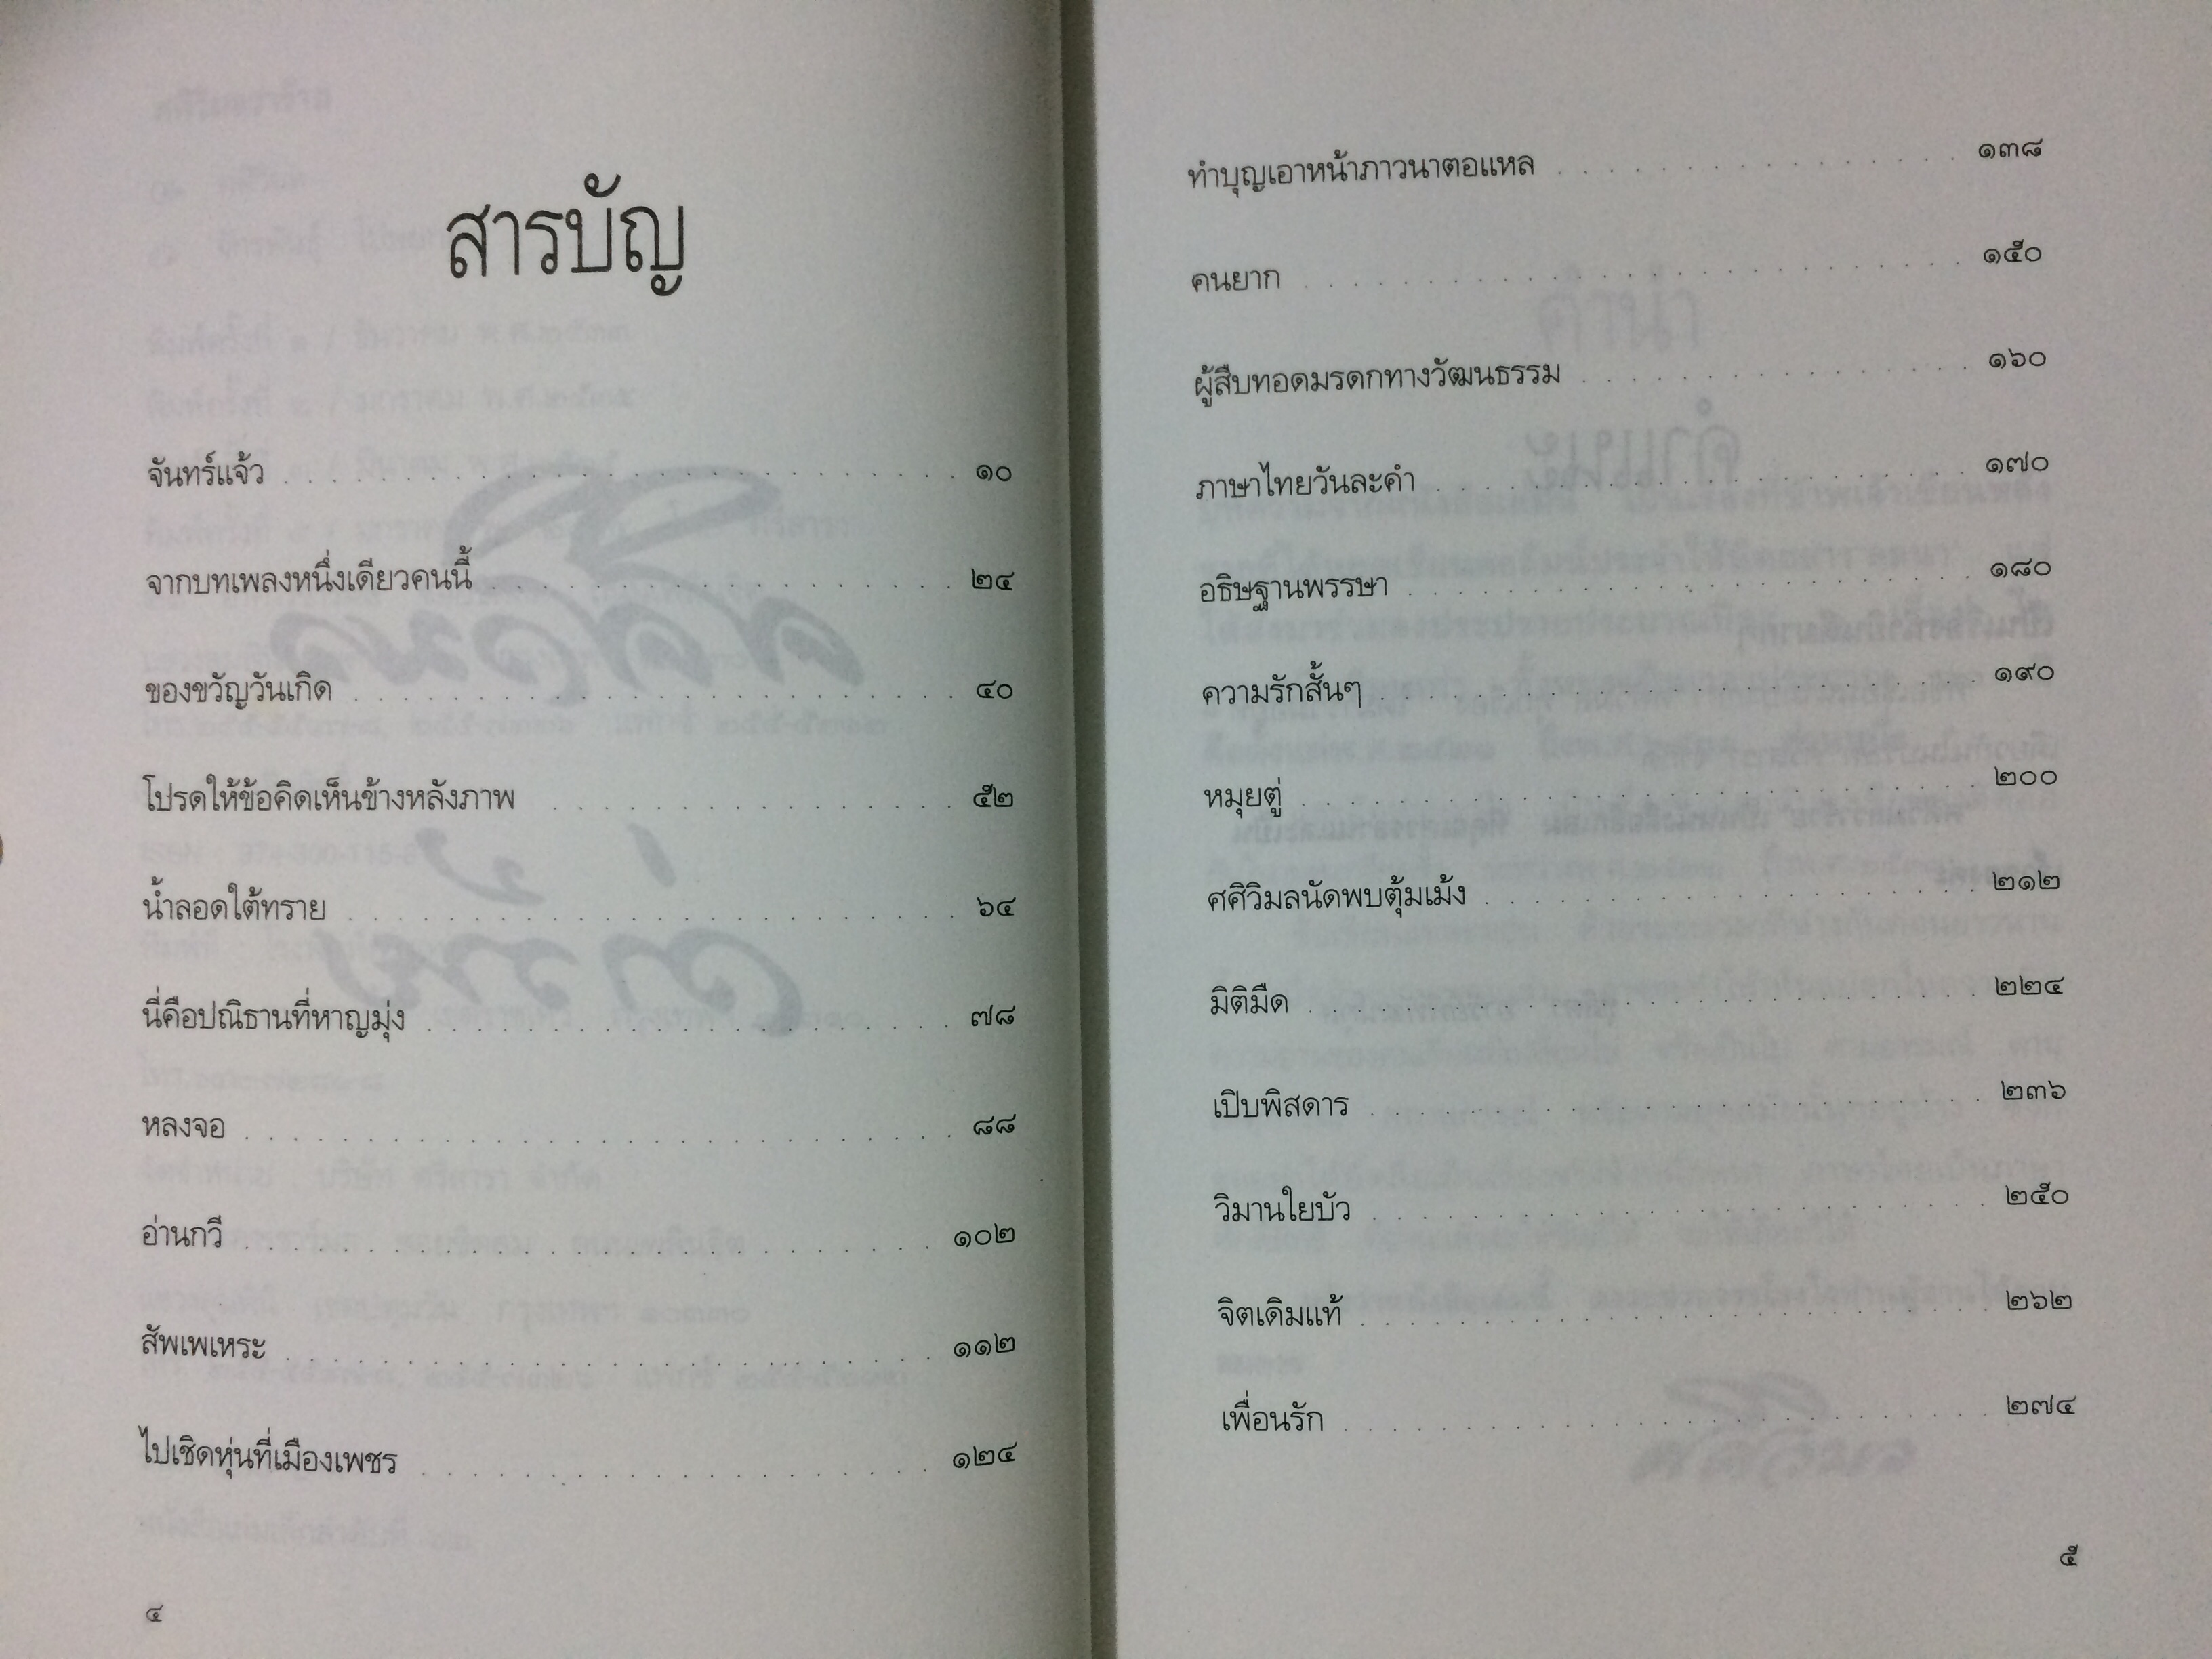 สารบัญ
จันทร์แจ้ว . . . . . . . . . . . . . . . . . . . . ๑๐
จากบทเพลงหนึ่งเดียวคนนี้ . . . . . . . . . . . . . . ๒๔
ของขวัญวันเกิด . . . . . . . . . . . . . . . . . . ๔๐
โปรดให้ข้อคิดเห็นข้างหลังภาพ . . . . . . . . . . . . ๕๒
น้ำลอดใต้ทราย . . . . . . . . . . . . . . . . . . ๖๔
นี่คือปณิธานที่หาญมุ่ง . . . . . . . . . . . . . . . . ๗๘
หลงจอ . . . . . . . . . . . . . . . . . . . . . ๘๘
อ่านกวี . . . . . . . . . . . . . . . . . . . . . ๑๐๒
สัพเพเหระ . . . . . . . . . . . . . . . . . . . . ๑๑๒
ไปเชิดหุ่นที่เมืองเพชร . . . . . . . . . . . . . . . ๑๒๔
๔
ทำบุญเอาหน้าภาวนาตอแหล . . . . . . . . . . . . . ๑๓๘
คนยาก . . . . . . . . . . . . . . . . . . . . . ๑๕๐
ผู้สืบทอดมรดกทางวัฒนธรรม . . . . . . . . . . . . . ๑๖๐
ภาษาไทยวันละคำ . . . . . . . . . . . . . . . . . ๑๗๐
อธิษฐานพรรษา . . . . . . . . . . . . . . . . . . ๑๘๐
ความรักสั้นๆ . . . . . . . . . . . . . . . . . . . ๑๙๐
หมุยตู่ . . . . . . . . . . . . . . . . . . . . . ๒๐๐
ศศิวิมลนัดพบตุ้มเม้ง . . . . . . . . . . . . . . . . ๒๑๒
มิติมืด . . . . . . . . . . . . . . . . . . . . . ๒๒๔
เปิบพิสดาร . . . . . . . . . . . . . . . . . . . ๒๓๖
วิมานใยบัว . . . . . . . . . . . . . . . . . . . ๒๕๐
จิตเดิมแท้ . . . . . . . . . . . . . . . . . . . . ๒๖๒
เพื่อนรัก . . . . . . . . . . . . . . . . . . . . ๒๗๔
๕